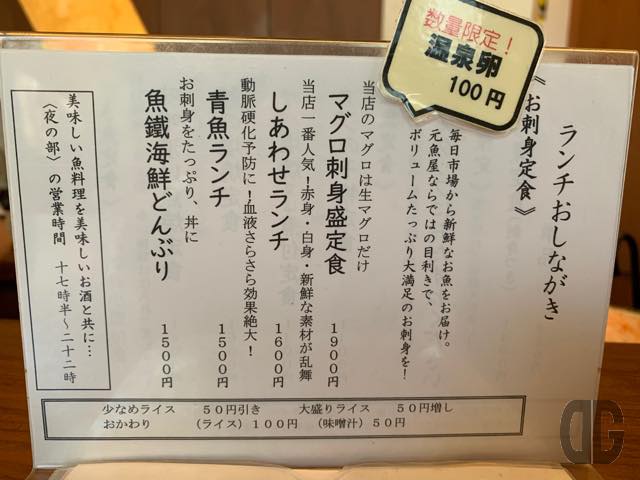 数量限定！
温泉卵
100円
ランチおしながき
《お刺身定食》
毎日市場から新鮮なお魚をお届け。
元魚屋ならではの目利きで、
ボリュームたっぷり大満足のお刺身を！
当店のマグロは生マグロだけ
マグロ刺身盛定食 1900円
当店一番人気！赤身・白身・新鮮な素材が乱舞
しあわせランチ 1600円
動脈硬化予防に！血液さらさら効果絶大！
青魚ランチ 1500円
お刺身をたっぷり、丼に
魚鐵海鮮どんぶり 1500円
美味しい魚料理を美味しいお酒と共に…
〈夜の部〉の営業時間 十七時半〜二十二時
少なめライス 50円引き 大盛りライス 50円増し
おかわり （ライス）100円 （味噌汁）50円
DG